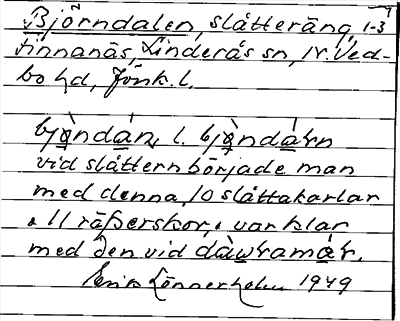 Björndalen, slåtteräng, 1-3
Finnanäs, Linderås sn, N. Ved-
bo hd, Jönk. l.
bjø̀ndán, l. bjø̀ndárn
vid slåttern började man
med denna, 10 slåttakarlar
o 11 räfserskor, o var klar
med den vid dàwramár.
Erik Lönnerholm 1949